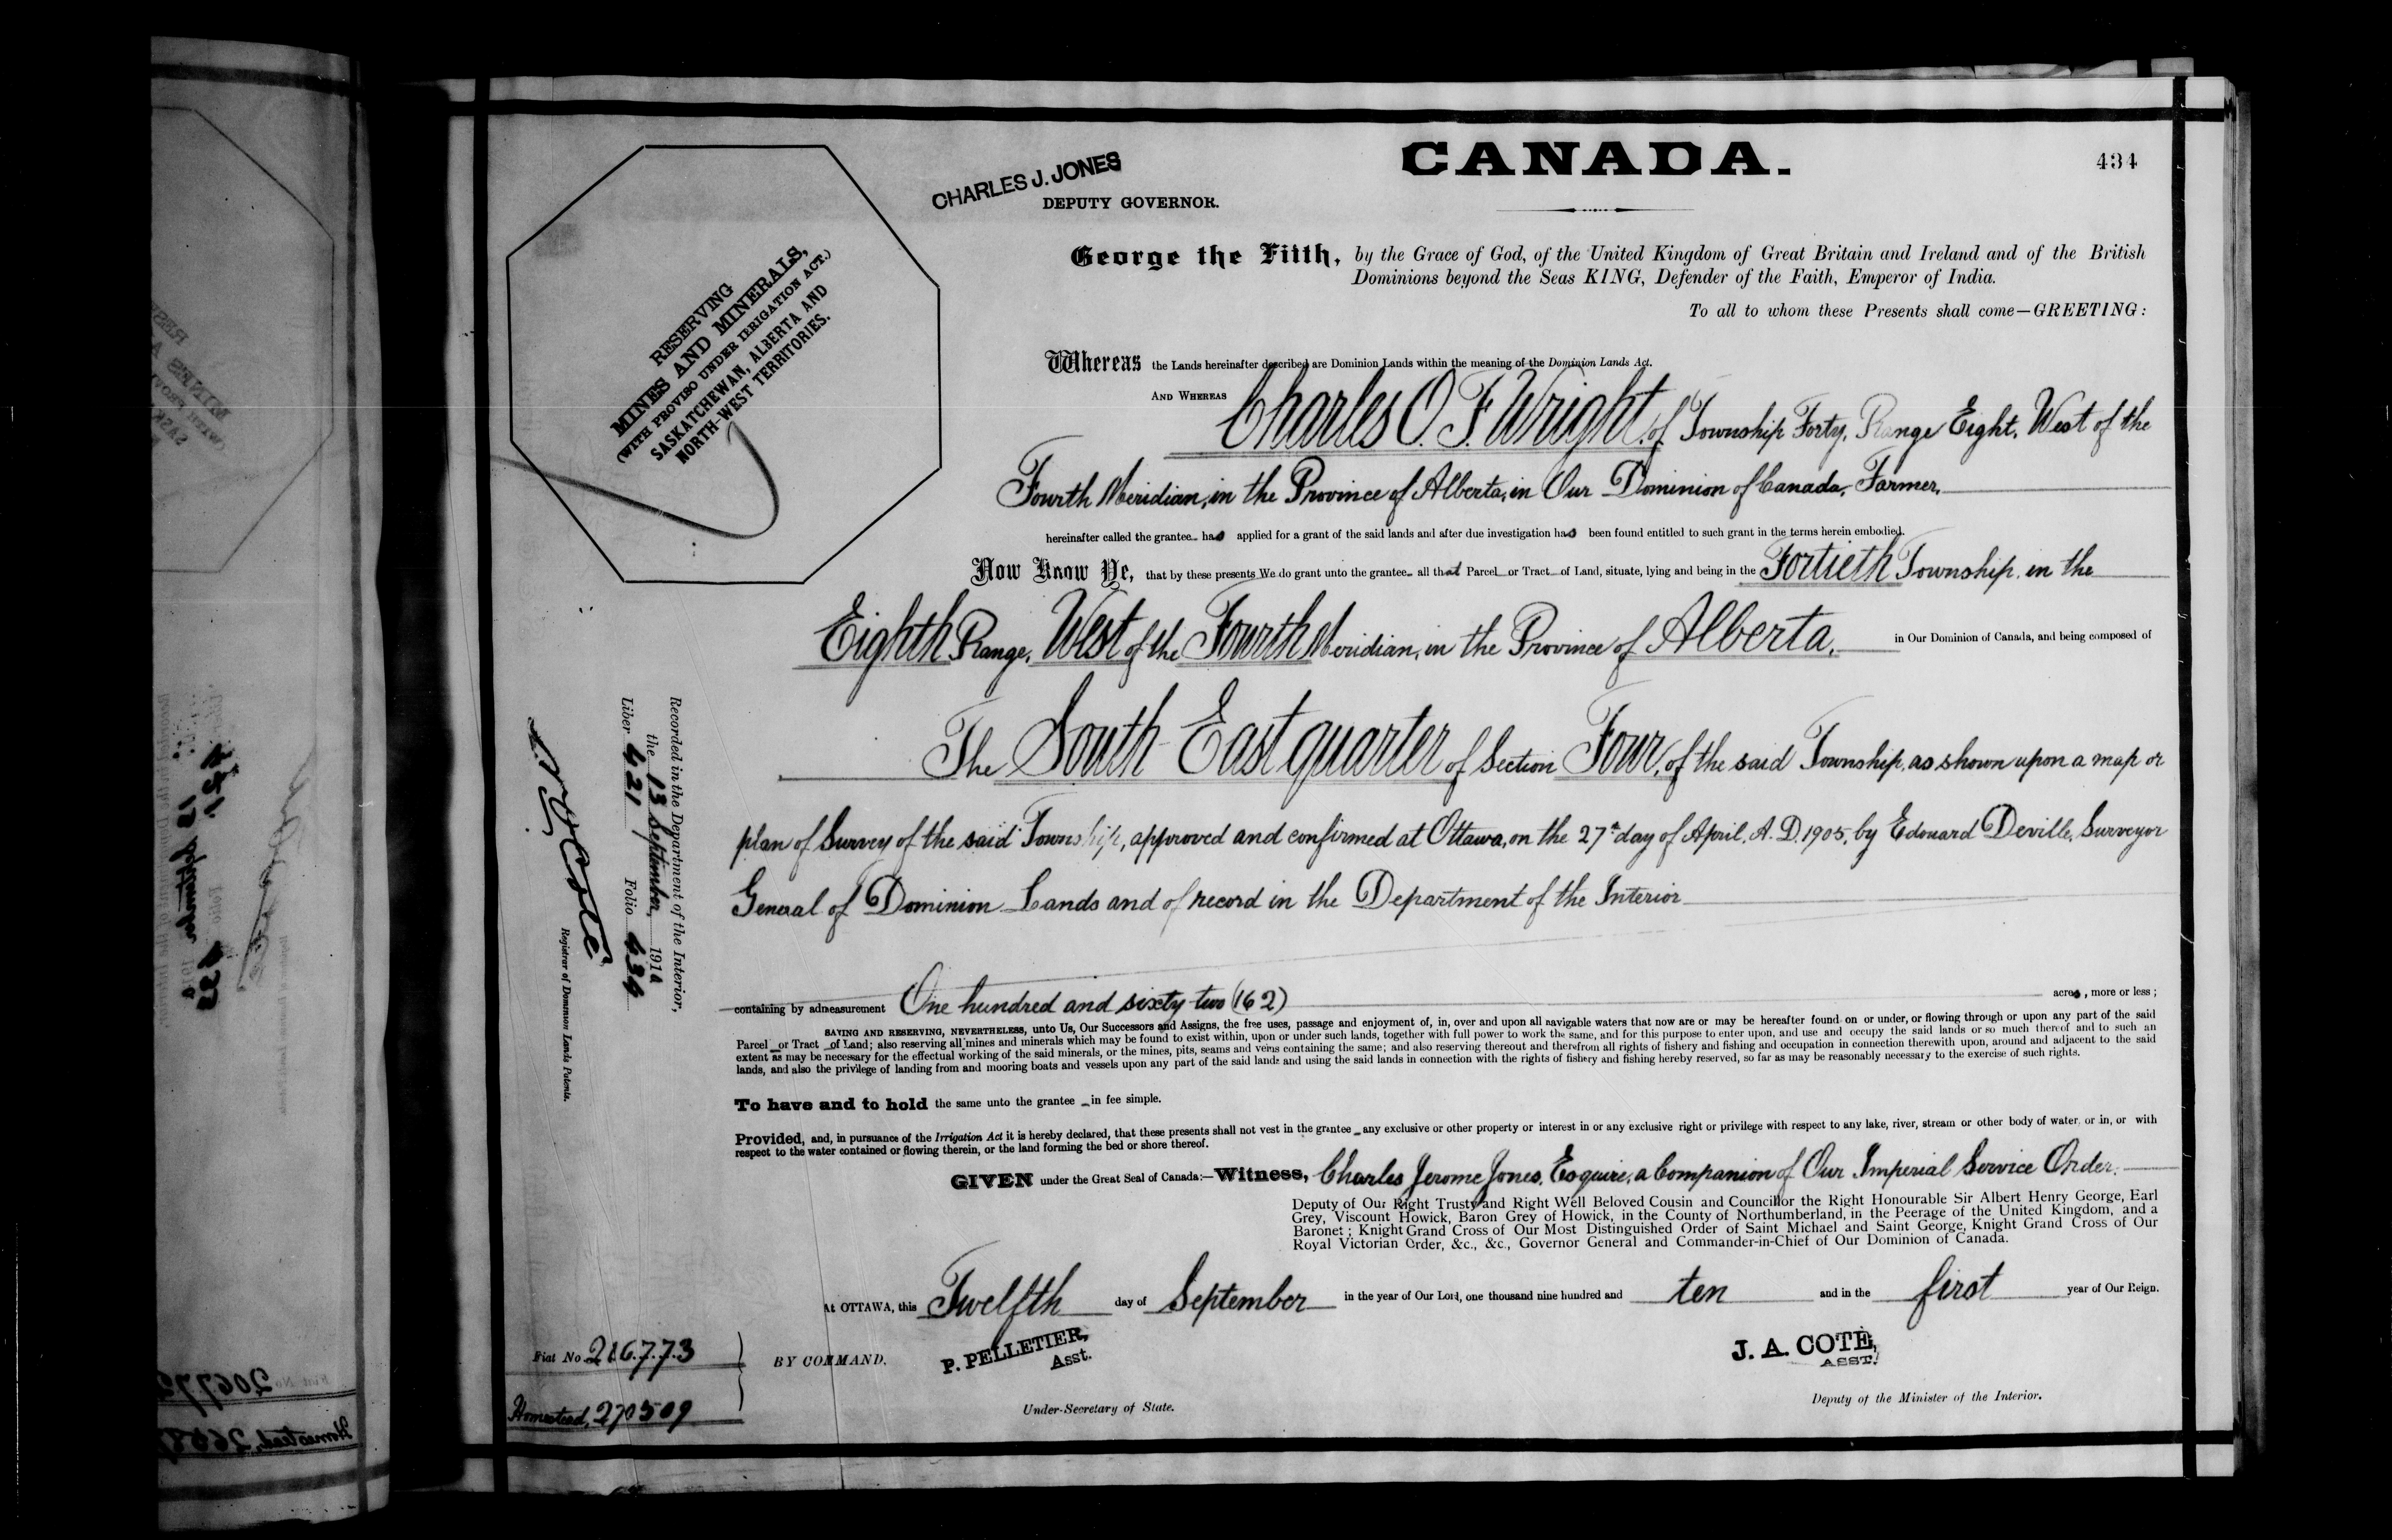 CANADA.
434
CHARLES J. JONES
DEPUTY GOVERNOR.
RESERVING
MINES AND MINERALS,
(WITH PROVISO UNDER IRRIGATION ACT.)
SASKATCHEWAN, ALBERTA AND
NORTH-WEST TERRITORIES.
George the Fifth, by the Grace of God, of the United Kingdom of Great Britain and Ireland and of the British
Dominions beyond the Seas KING, Defender of the Faith, Emperor of India.
To all to whom these Presents shall come—GREETING:
Whereas the Lands hereinafter described are Dominion Lands within the meaning of the Dominion Lands Act.
AND WHEREAS Charles O. F. Wright, of Township Forty, Range Eight, West of the
Fourth Meridian, in the Province of Alberta, in Our Dominion of Canada, Farmer,
hereinafter called the grantee has applied for a grant of the said lands and after due investigation has been found entitled to such grant in the terms herein embodied.
Now Know Ye, that by these presents We do grant unto the grantee all that Parcel or Tract of Land, situate, lying and being in the Fortieth Township, in the
Eighth Range, West of the Fourth Meridian, in the Province of Alberta, in Our Dominion of Canada, and being composed of
The South East quarter of Section Four, of the said Township, as shown upon a map or
plan of Survey of the said Township, approved and confirmed at Ottawa, on the 27th day of April, A. D. 1905, by Edouard Deville, Surveyor
General of Dominion Lands and of record in the Department of the Interior
containing by admeasurement One hundred and sixty two (162) acres, more or less;
SAVING AND RESERVING, NEVERTHELESS, unto Us, Our Successors and Assigns, the free uses, passage and enjoyment of, in, over and upon all navigable waters that now are or may be hereafter found on or under, or flowing through or upon any part of the said
Parcel or Tract of Land; also reserving all mines and minerals which may be found to exist within, upon or under such lands, together with full power to work the same, and for this purpose to enter upon, and use and occupy the said lands or so much thereof and to such an
extent as may be necessary for the effectual working of the said minerals, or the mines, pits, seams and veins containing the same; and also reserving thereout and therefrom all rights of fishery and fishing and occupation in connection therewith upon, around and adjacent to the said
lands, and also the privilege of landing from and mooring boats and vessels upon any part of the said lands and using the said lands in connection with the rights of fishery and fishing hereby reserved, so far as may be reasonably necessary to the exercise of such rights.
To have and to hold the same unto the grantee in fee simple.
Provided, and, in pursuance of the Irrigation Act it is hereby declared, that these presents shall not vest in the grantee any exclusive or other property or interest in or any exclusive right or privilege with respect to any lake, river, stream or other body of water, or in, or with
respect to the water contained or flowing therein, or the land forming the bed or shore thereof.
GIVEN under the Great Seal of Canada:—Witness, Charles Jerome Jones, Esquire, a Companion of Our Imperial Service Order.
Deputy of Our Right Trusty and Right Well Beloved Cousin and Councillor the Right Honourable Sir Albert Henry George, Earl
Grey, Viscount Howick, Baron Grey of Howick, in the County of Northumberland, in the Peerage of the United Kingdom, and a
Baronet; Knight Grand Cross of Our Most Distinguished Order of Saint Michael and Saint George, Knight Grand Cross of Our
Royal Victorian Order, &c., &c., Governor General and Commander-in-Chief of Our Dominion of Canada.
At OTTAWA, this Twelfth day of September in the year of Our Lord, one thousand nine hundred and ten and in the first year of Our Reign.
BY COMMAND,
P. PELLETIER,
Asst.
Under-Secretary of State.
J. A. COTÉ,
ASST.
Deputy of the Minister of the Interior.
Fiat No. 216773
Homestead, 270509
Recorded in the Department of the Interior,
the 13 September, 1910
Liber 421 Folio 434
Registrar of Dominion Lands Patents.